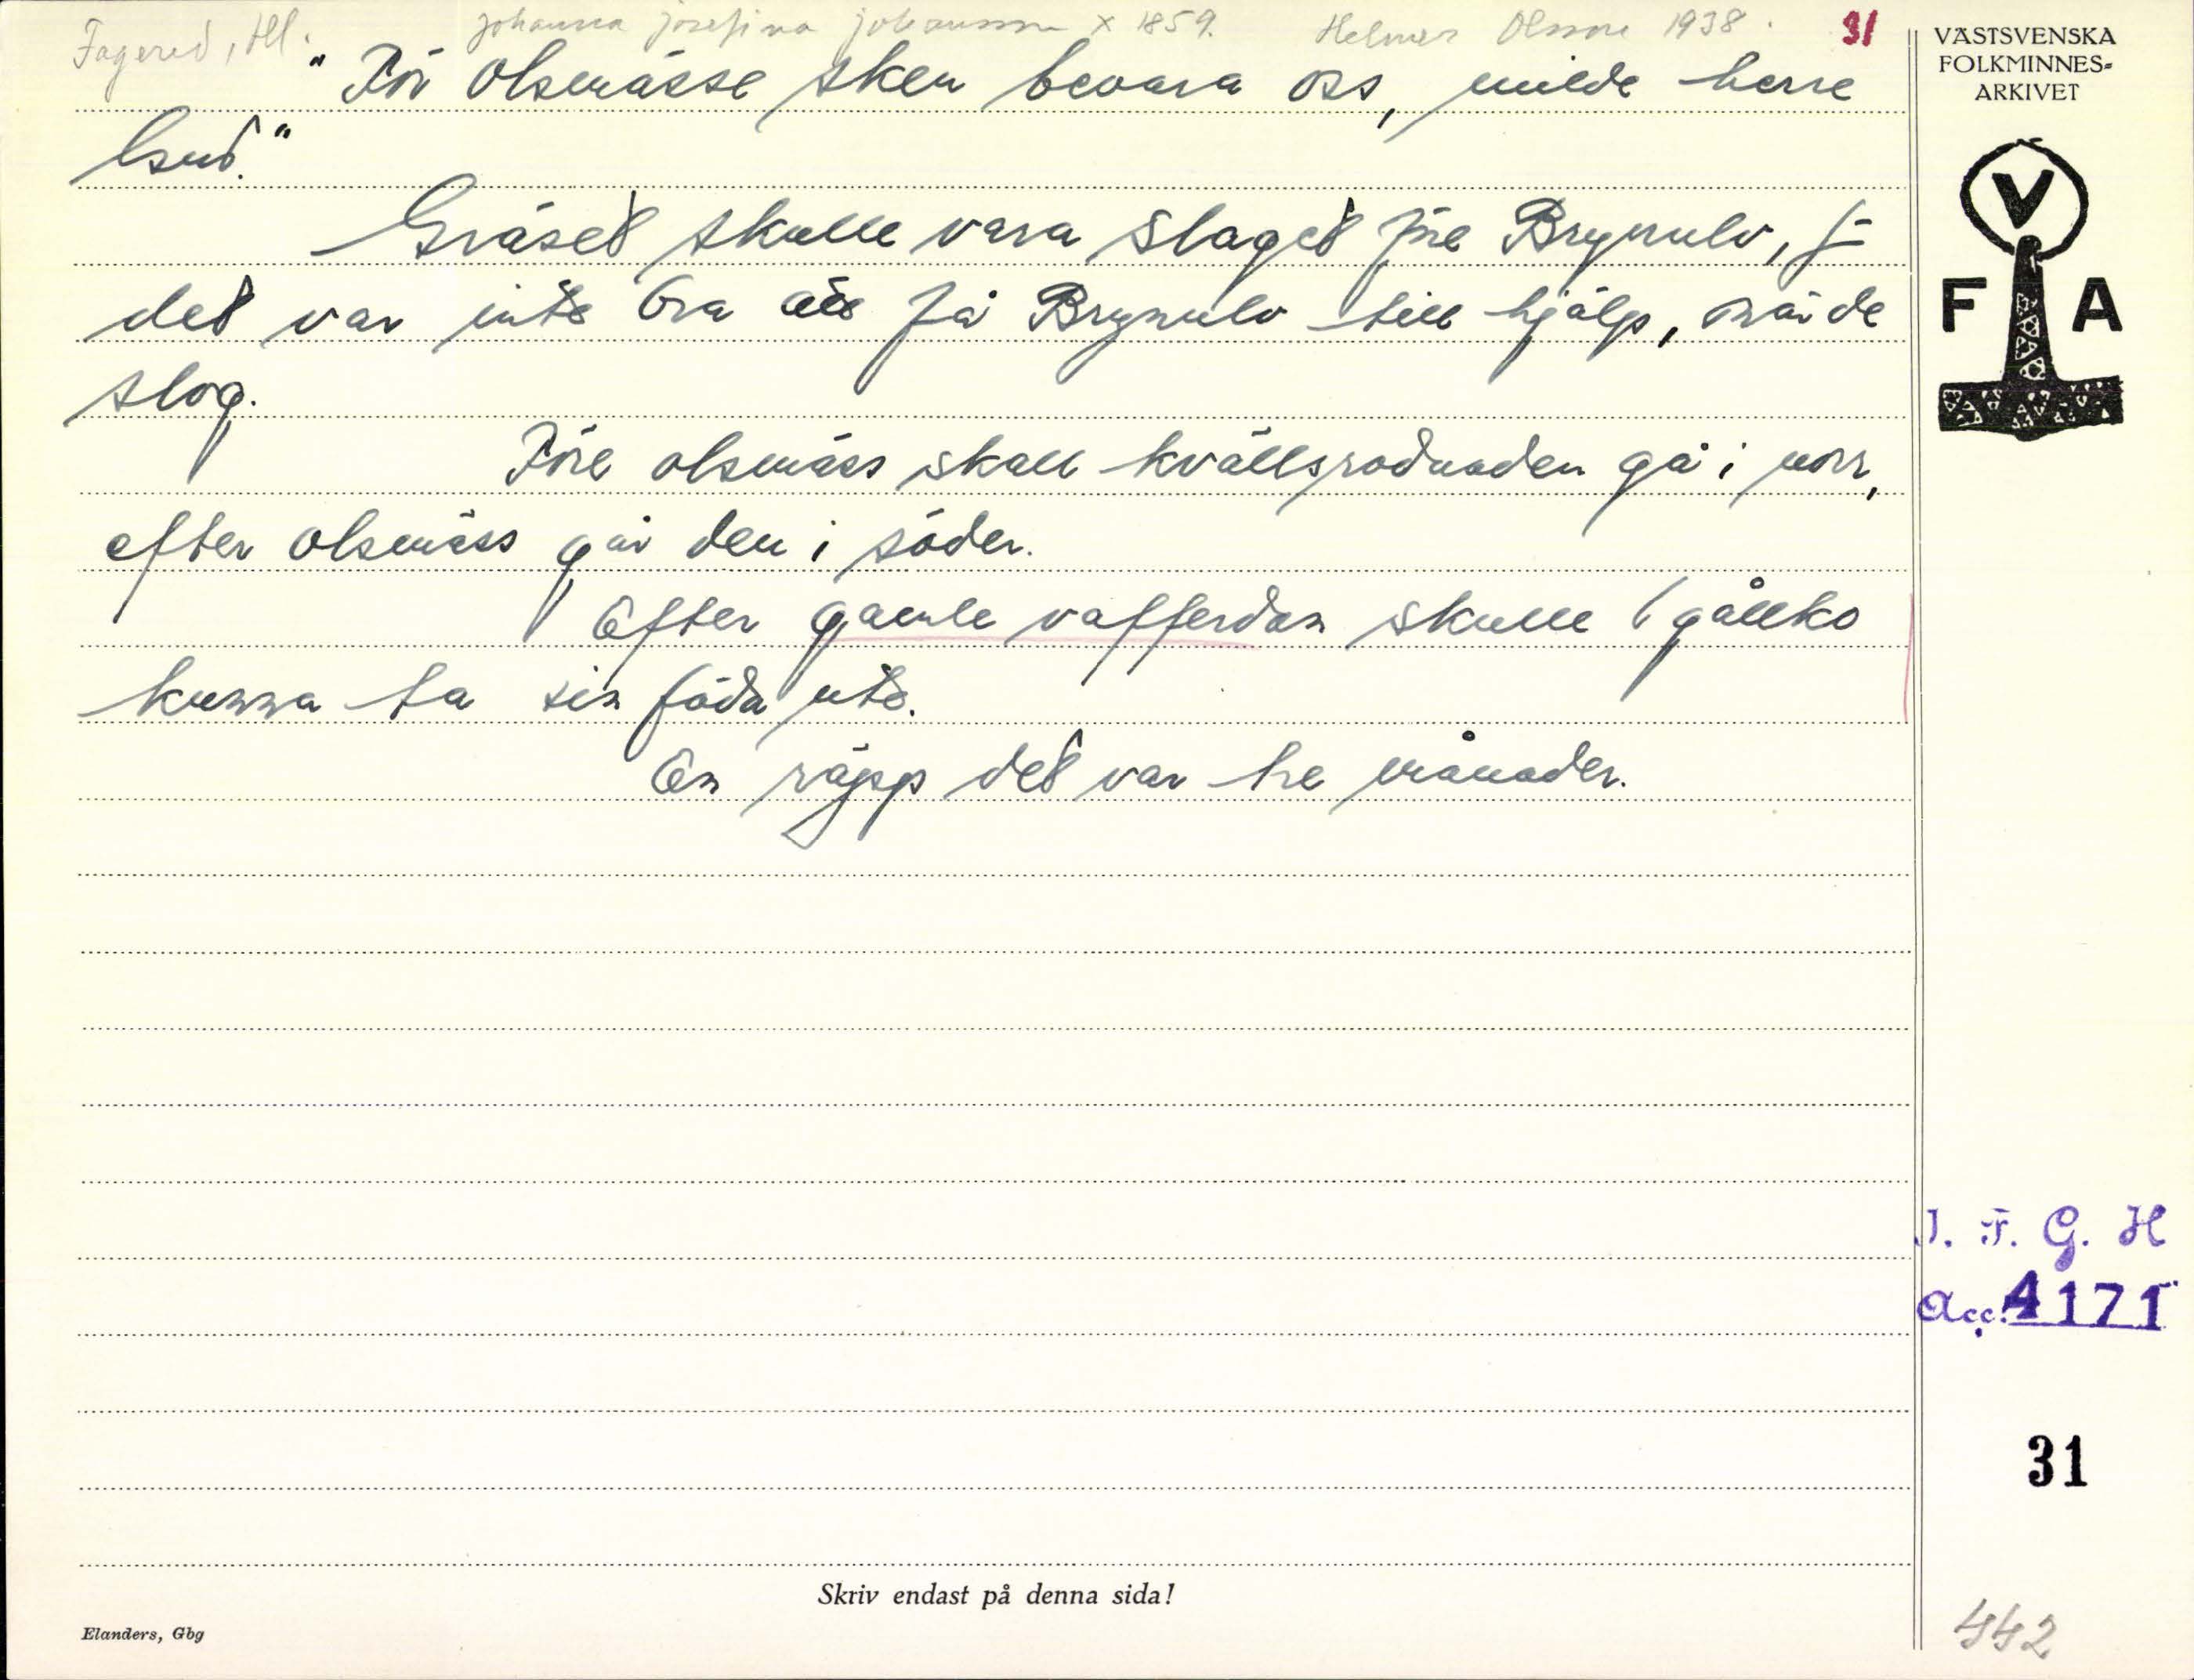 Fagered, Hl. Johanna Josefina Johansson x 1859. Helmer Olsson 1938. 31
"För Olsmässe sken bevara oss, milde herre
Gud."
Gräset skulle vara slaget före Brynulv, f
det var inte bra att få Brynulv till hjälp, när de
slog.
Före olsmäss skall kvällsrodnaden gå i norr,
efter olsmäss går den i söder.
Efter gamle vafferdan skulle gållko
kunna ta sin föda ute.
En räpp det var tre månader.
VÄSTSVENSKA
FOLKMINNES-
ARKIVET
V
F A
I. F. G. H
Acc. 4171
31
442
Skriv endast på denna sida!
Elanders, Gbg